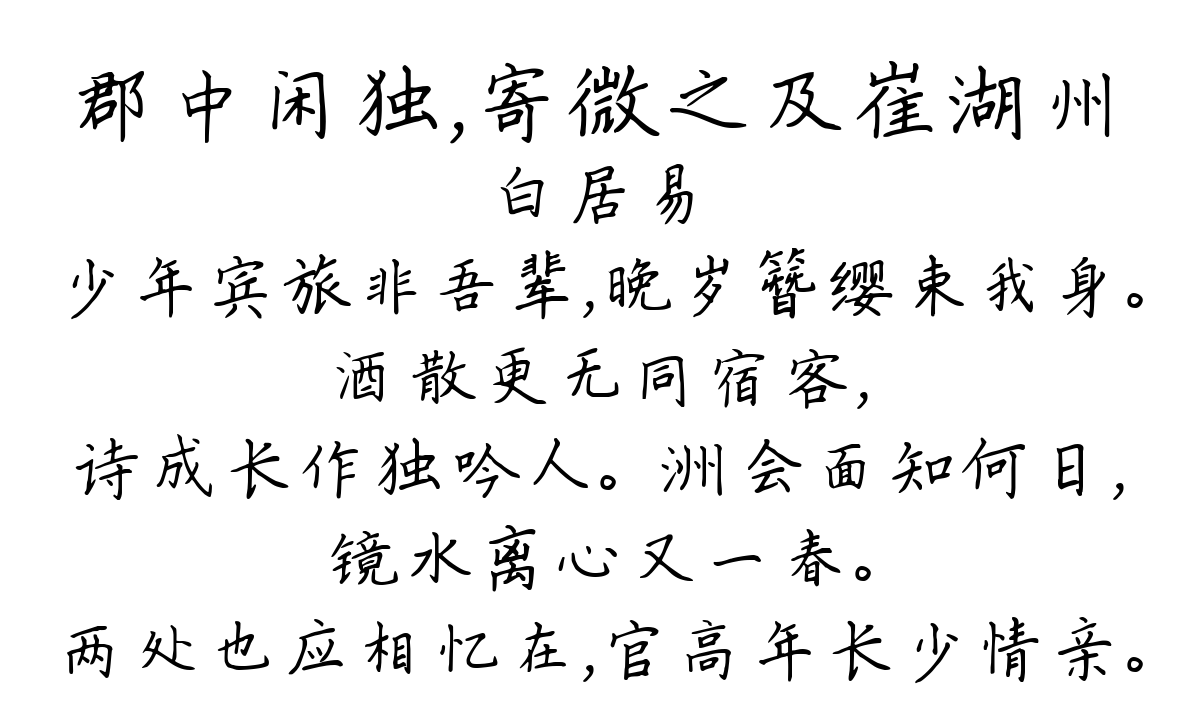 郡中闲独,寄微之及崔湖州
白居易
少年宾旅非吾辈,晚岁簪缨束我身。
酒散更无同宿客,
诗成长作独吟人。洲会面知何日,
镜水离心又一春。
两处也应相忆在,官高年长少情亲。